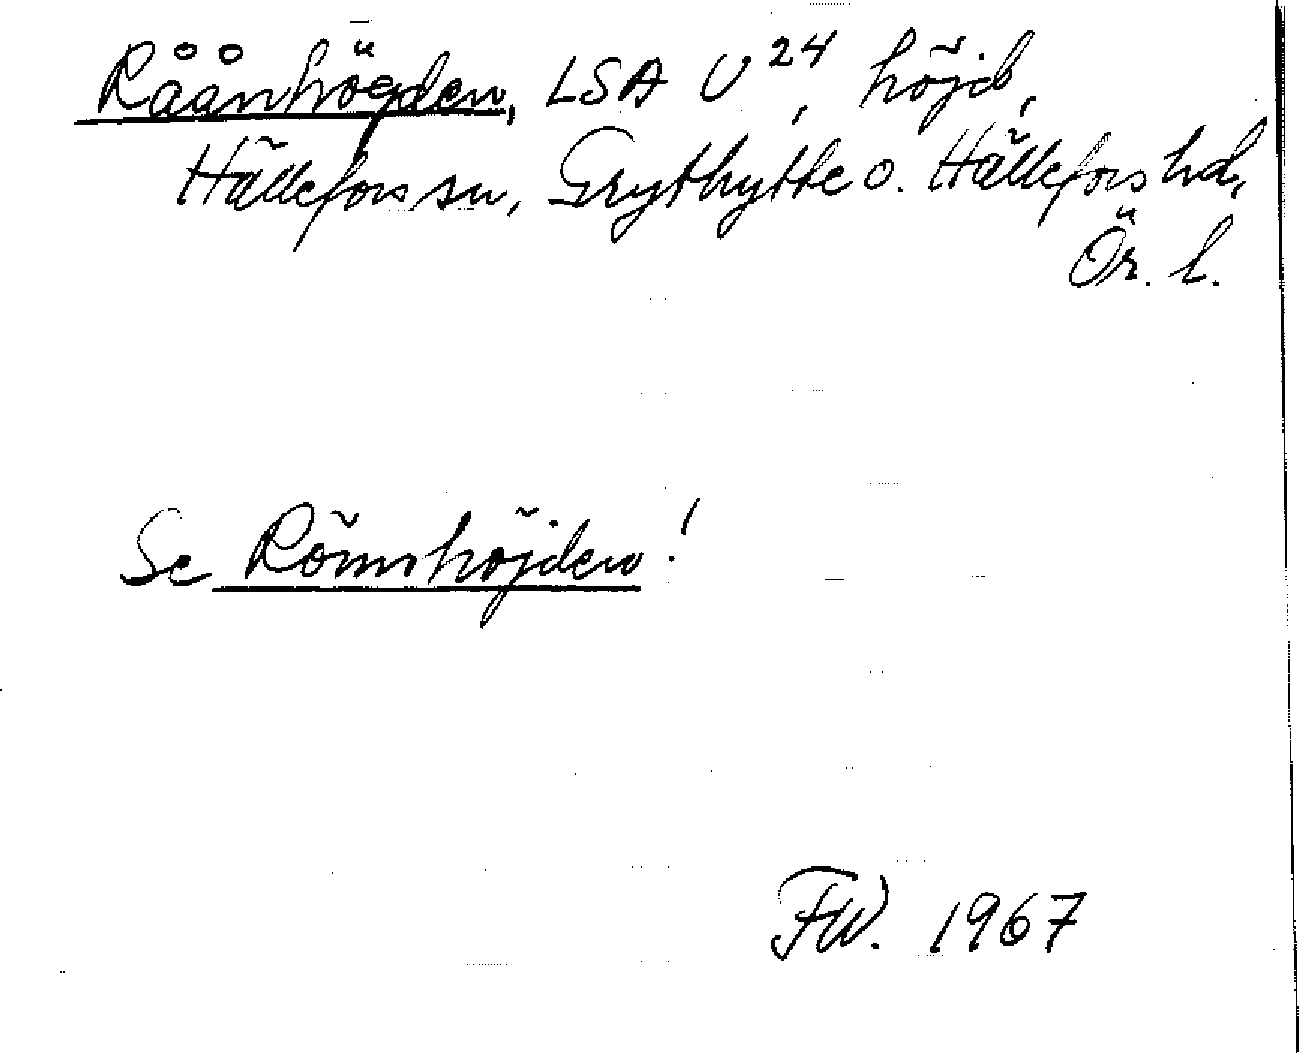 Råånhögden, LSA U²⁴, höjd,
Hällefors sn, Grythytte o. Hällefors hd,
Ör. l.
Se Rönnshöjden!
FW. 1967